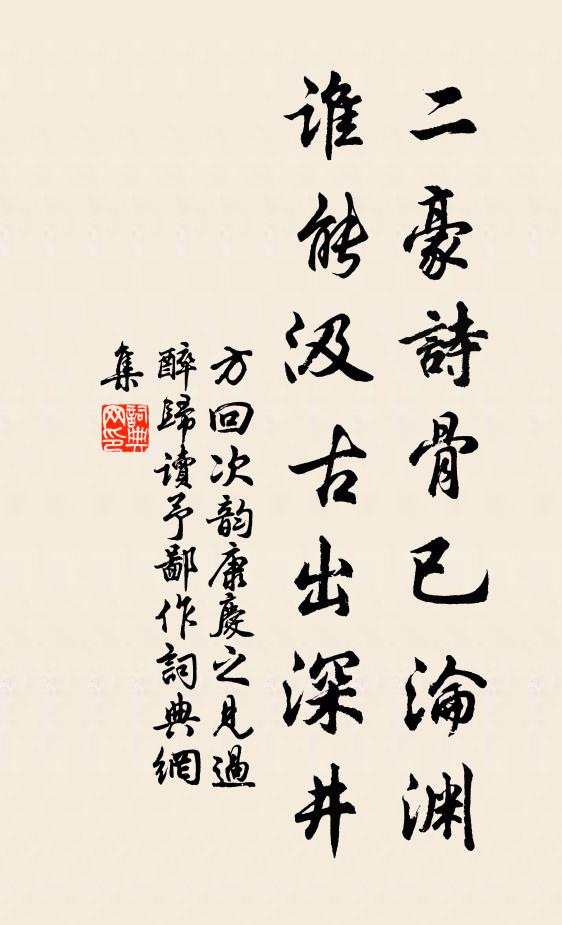 二豪詩骨已淪渊
誰能汲古出深井
方回次韵康慶之見過
醉歸讀予鄙作詞典網
集
詞典
网印